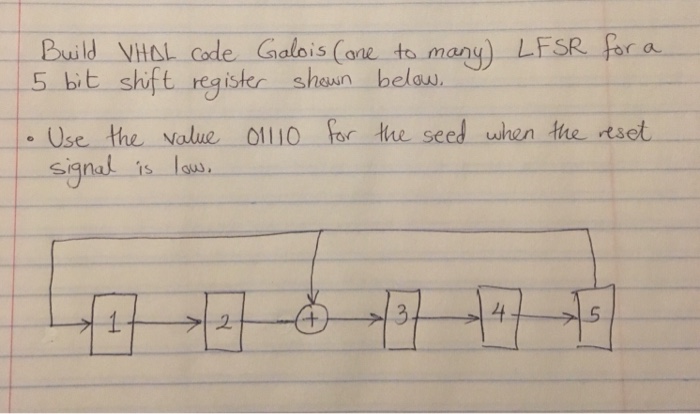 Build VHDL code Galois (one to many) LFSR for a
5 bit shift register shown below.
• Use the value 01110 for the seed when the reset
signal is low.
1 2 + 3 4 5